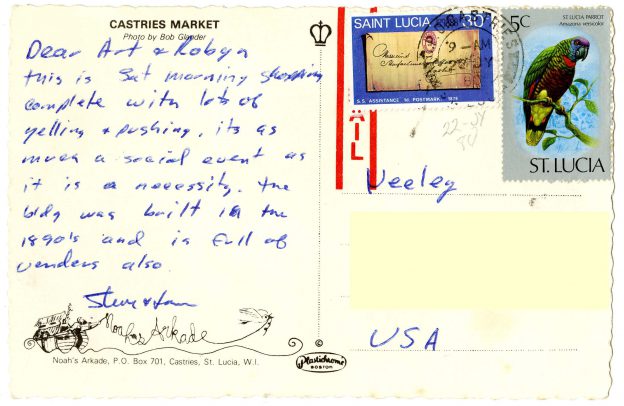 CASTRIES MARKET
Photo by Bob Glander
Dear Art & Robyn
This is Sat morning shopping
complete with lots of
yelling & pushing. its as
much a social event as
it is a necessity. The
bldg was built in the
1890's and is full of
vendors also.
Steve &
Noahs Arkade
Noah's Arkade, P.O. Box 701, Castries, St. Lucia, W.I.
©
Plastichrome
BOSTON
SAINT LUCIA 30
S.S. ASSISTANCE 1d. POSTMARK 1879
9 - AM
5c
ST. LUCIA PARROT
Amazona versicolor
ST. LUCIA
AIL
Veeley
USA